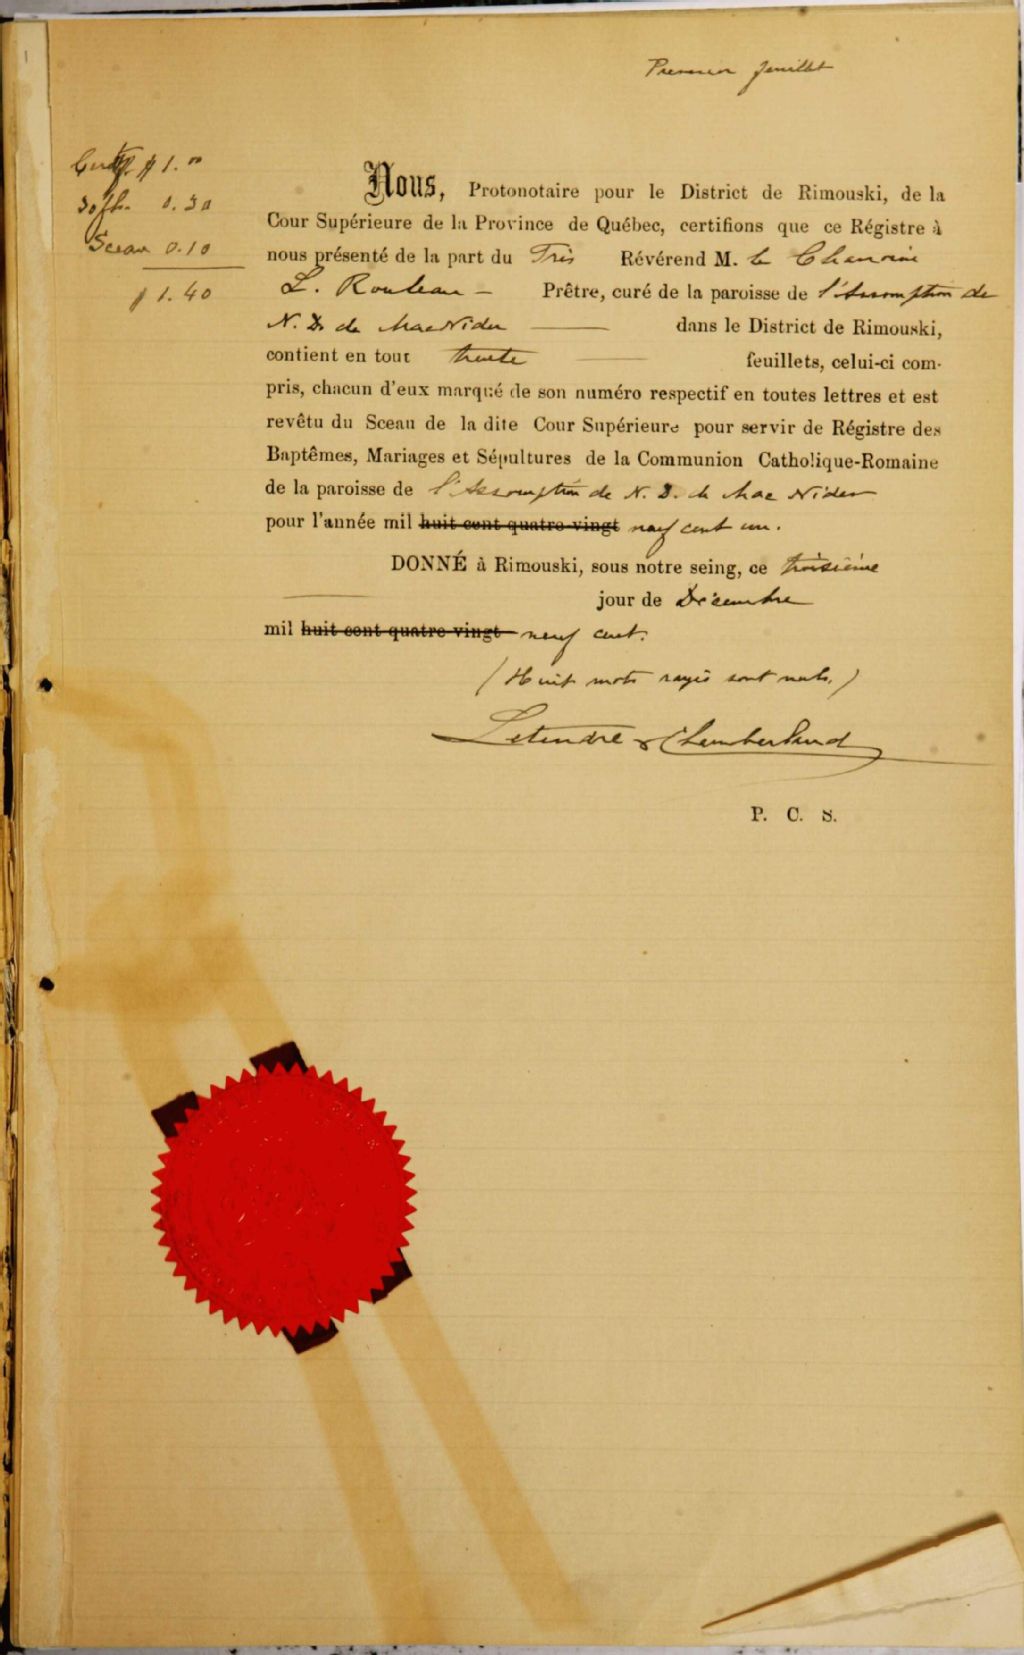 Premier feuillet
Certif. $ 1.00
30 fts. 0.30
Sceau 0.10
$ 1.40
Nous, Protonotaire pour le District de Rimouski, de la
Cour Supérieure de la Province de Québec, certifions que ce Régistre à
nous présenté de la part du Très Révérend M. le Chanoine
L. Rouleau - Prêtre, curé de la paroisse de l'Assomption de
N. D. de MacNider dans le District de Rimouski,
contient en tout trente feuillets, celui-ci com-
pris, chacun d'eux marqué de son numéro respectif en toutes lettres et est
revêtu du Sceau de la dite Cour Supérieure pour servir de Régistre des
Baptêmes, Mariages et Sépultures de la Communion Catholique-Romaine
de la paroisse de l'Assomption de N. D. de Mac Nider
pour l'année mil huit cent quatre-vingt neuf cent un.
DONNÉ à Rimouski, sous notre seing, ce troisième
jour de Décembre
mil huit cent quatre vingt neuf cent.
(Huit mots rayés sont nuls.)
Letendre & Chamberland
P. C. S.